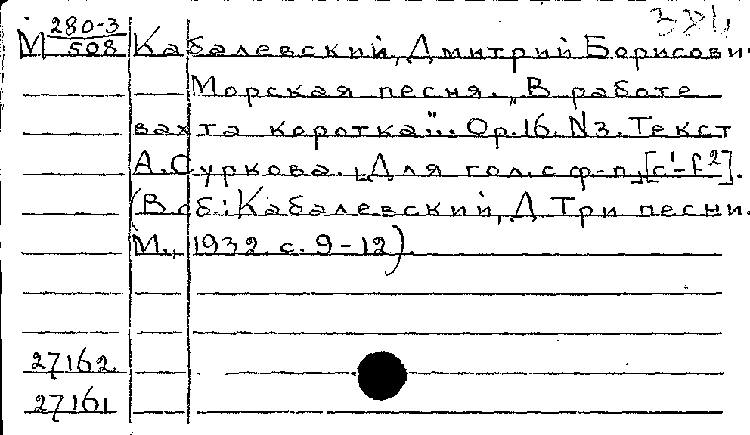 М 280-3/508 Кабалевский, Дмитрий Борисович
Морская песня. „В работе
вахта коротка"... Ор. 16. N3. Текст
А. Суркова. [Для гол. с ф-п.] [c¹-f²].
(В сб: Кабалевский, Д. Три песни.
М., 1932 с. 9-12).
27162
27161